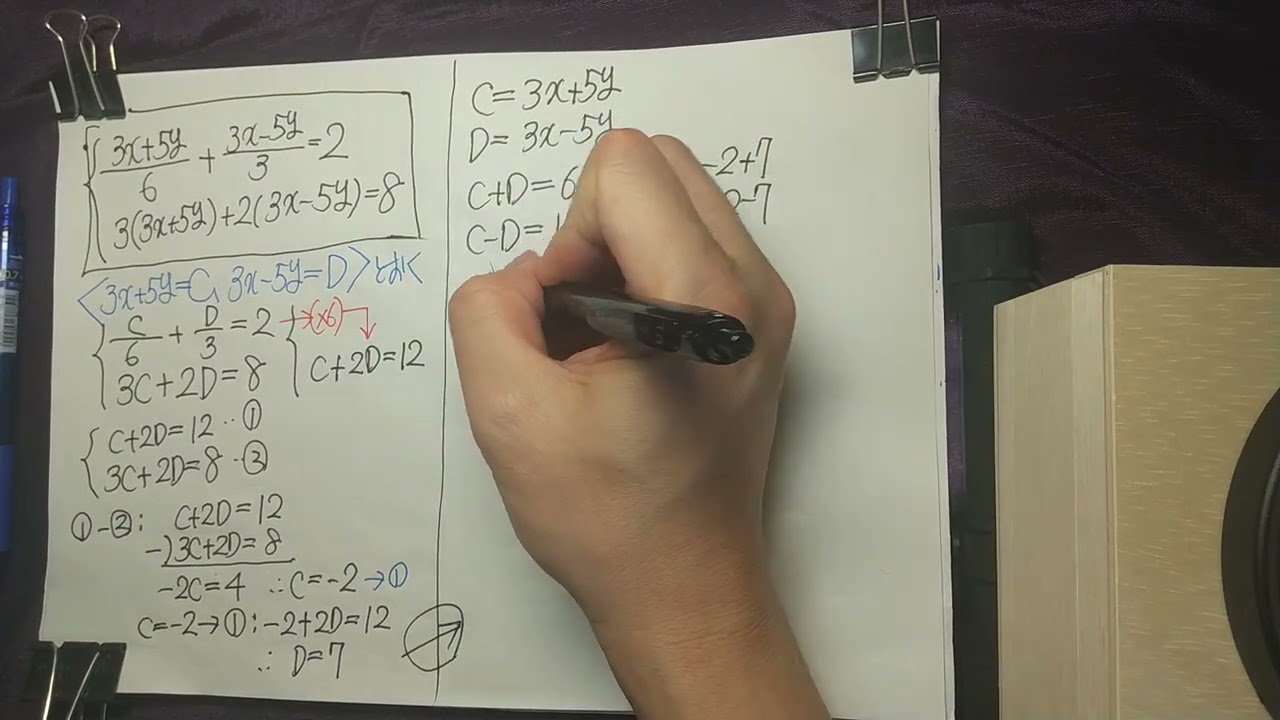 3x+5y/6 + 3x-5y/3 = 2
3(3x+5y)+2(3x-5y)=8
<3x+5y=C, 3x-5y=D>とおく
C/6 + D/3 = 2 →(×6)
3C+2D=8
C+2D=12
C+2D=12 ‥①
3C+2D=8 ‥②
①-②: C+2D=12
-)3C+2D=8
-2C=4 ∴C=-2→①
C=-2→①:-2+2D=12
∴ D=7
C=3x+5y
D=3x-5y
C+D=6 -2+7
C-D=1 -7